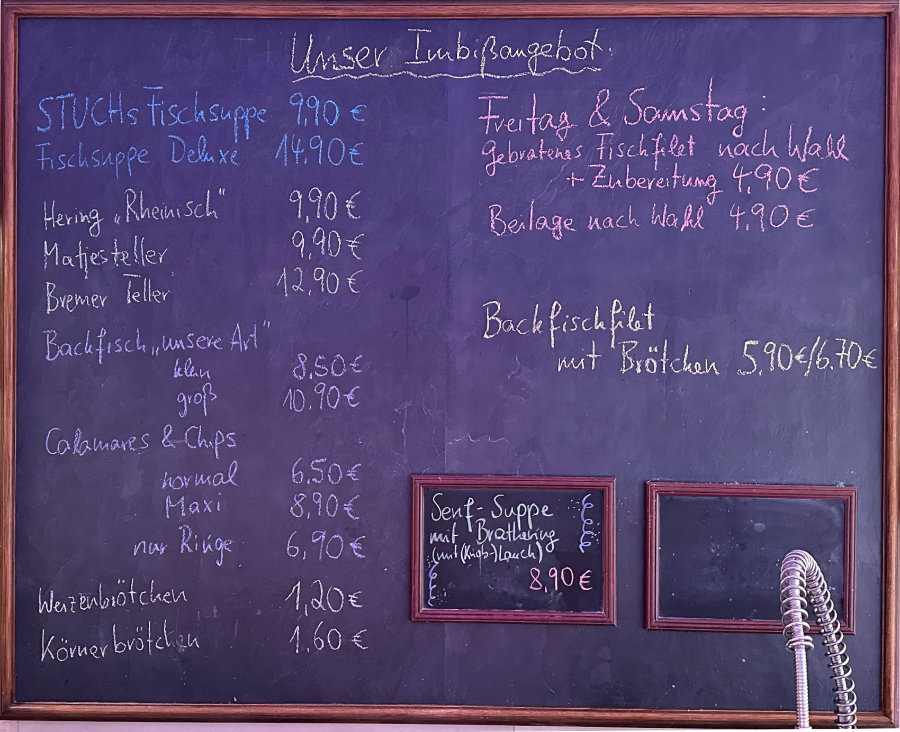 Unser Imbißangebot.
STUCHs Fischsuppe 9,90 €
Fischsuppe Deluxe 14,90 €
Hering „Rheinisch" 9,90 €
Matjesteller 9,90 €
Bremer Teller 12,90 €
Backfisch „unsere Art"
klein 8,50 €
groß 10,90 €
Calamares & Chips
normal 6,50 €
Maxi 8,90 €
nur Ringe 6,90 €
Weizenbrötchen 1,20 €
Körnerbrötchen 1,60 €
Freitag & Samstag:
Gebratenes Fischfilet nach Wahl
+ Zubereitung 4,90 €
Beilage nach Wahl 4,90 €
Backfischfilet
mit Brötchen 5,90€/6,70€
Senf-Suppe
mit Brathering
(mit (Knob-)Lauch)
8,90 €